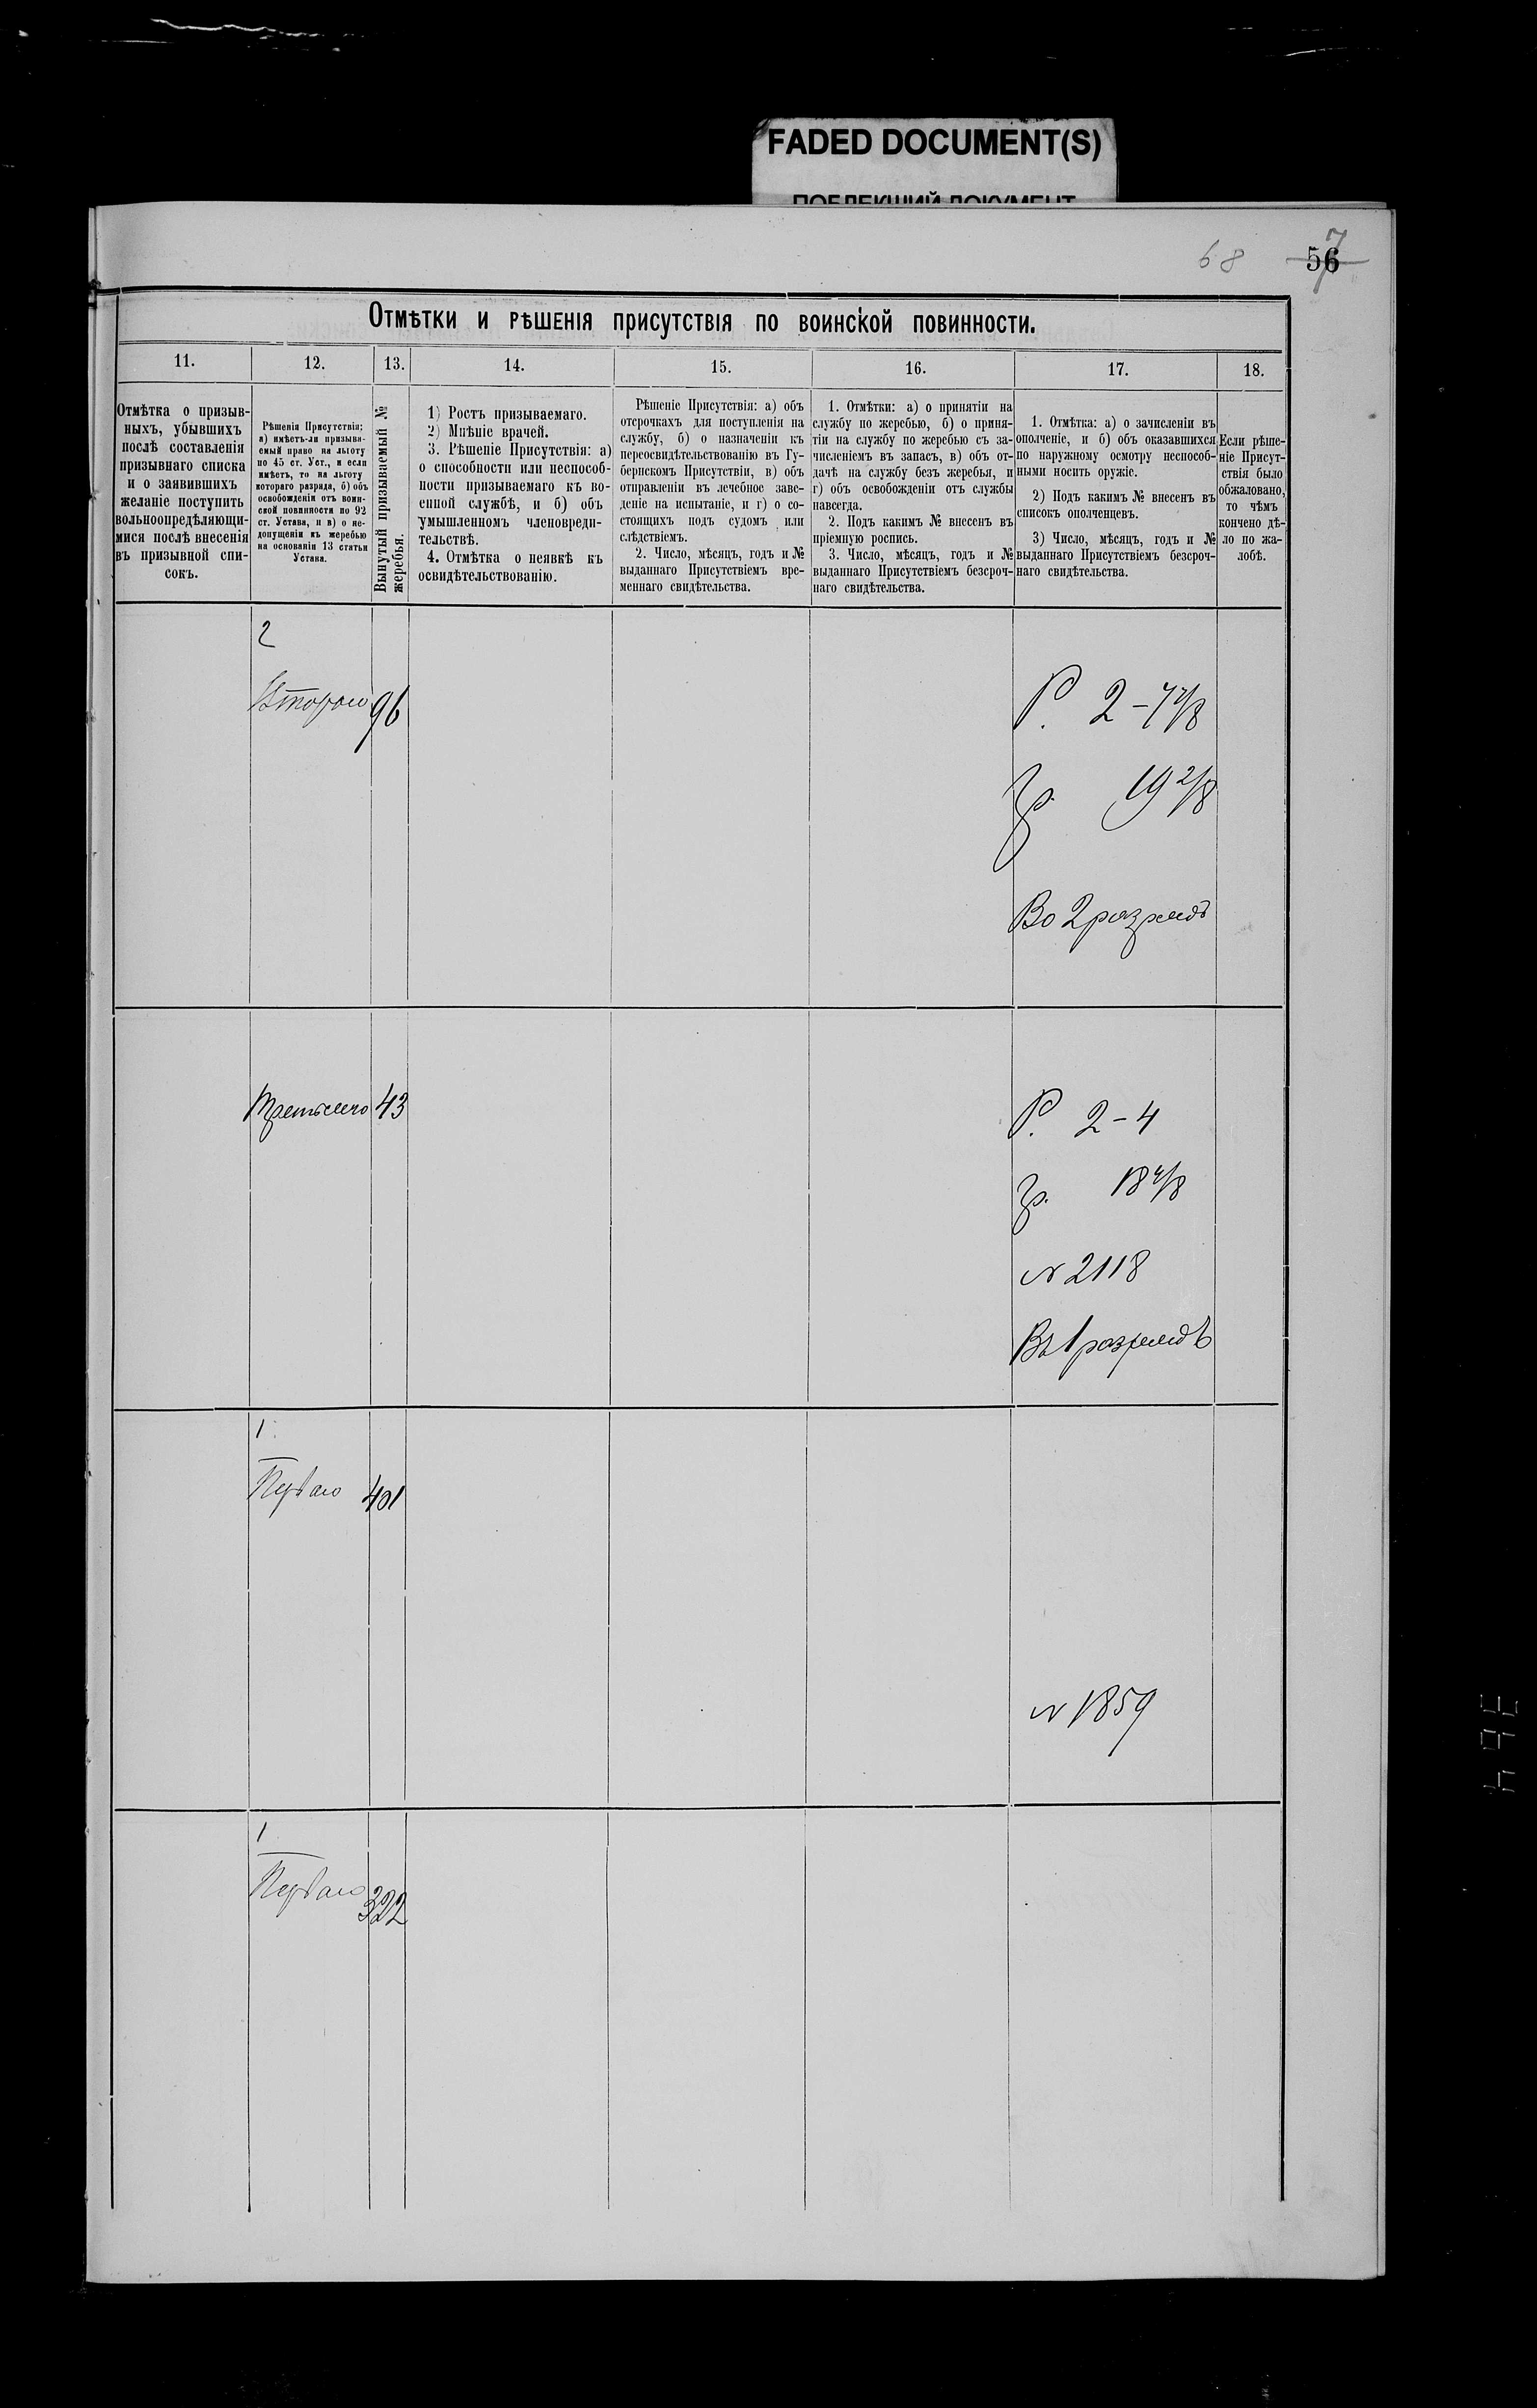 FADED DOCUMENT(S)
ПОБЛЕКШИЙ ДОКУМЕНТ
68 56 7
Отмѣтки и рѣшенія присутствія по воинской повинности.
11. 12. 13. 14. 15. 16. 17. 18.
Отмѣтка о призыв-
ныхъ, убывшихъ
послѣ составленія
призывнаго списка
и о заявившихъ
желаніе поступить
вольноопредѣляющи-
мися послѣ внесенія
въ призывной спи-
сокъ.
Рѣшенія Присутствія:
а) имѣетъ-ли призыва-
емый право на льготу
по 45 ст. Уст., и если
имѣетъ, то на льготу
котораго разряда, б) объ
освобожденіи отъ воин-
ской повинности по 92
ст. Устава, и в) о не-
допущеніи къ жеребью
на основаніи 13 статьи
Устава.
Вынутый призываемый №
жеребья.
1) Ростъ призываемаго.
2) Мнѣніе врачей.
3. Рѣшеніе Присутствія: а)
о способности или неспособ-
ности призываемаго къ во-
енной службѣ, и б) объ
умышленномъ членовреди-
тельствѣ.
4. Отмѣтка о неявкѣ къ
освидѣтельствованію.
Рѣшеніе Присутствія: а) объ
отсрочкахъ для поступленія на
службу, б) о назначеніи къ
переосвидѣтельствованію въ Гу-
бернскомъ Присутствіи, в) объ
отправленіи въ лечебное заве-
деніе на испытаніе, и г) о со-
стоящихъ подъ судомъ или
слѣдствіемъ.
2. Число, мѣсяцъ, годъ и №
выданнаго Присутствіемъ вре-
меннаго свидѣтельства.
1. Отмѣтки: а) о принятіи на
службу по жеребью, б) о приня-
тіи на службу по жеребью съ за-
численіемъ въ запасъ, в) объ от-
дачѣ на службу безъ жеребья, и
г) объ освобожденіи отъ службы
навсегда.
2. Подъ какимъ № внесенъ въ
пріемную роспись.
3. Число, мѣсяцъ, годъ и №
выданнаго Присутствіемъ безсроч-
наго свидѣтельства.
1. Отмѣтка: а) о зачисленіи въ
ополченіе, и б) объ оказавшихся
по наружному осмотру неспособ-
ными носить оружіе.
2) Подъ какимъ № внесенъ въ
списокъ ополченцевъ.
3) Число, мѣсяцъ, годъ и №
выданнаго Присутствіемъ безсроч-
наго свидѣтельства.
Если рѣше-
ніе Присут-
ствія было
обжаловано,
то чѣмъ
кончено дѣ-
ло по жа-
лобѣ.
2
Втораго 96
Р. 2-4 4/8
гр. 19 2/8
Во 2 разрядъ
Третьяго 43
Р. 2-4
гр. 18 4/8
№ 2118
Въ 1 разрядъ
1
Перваго 401
№ 1859
1
Перваго 322